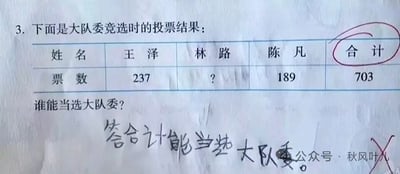 3. 下面是大队委竞选时的投票结果：
姓名 王泽 林路 陈凡 合计
票数 237 ? 189 703
谁能当选大队委？
答合计能当选大队委。
公众号·秋风叶儿